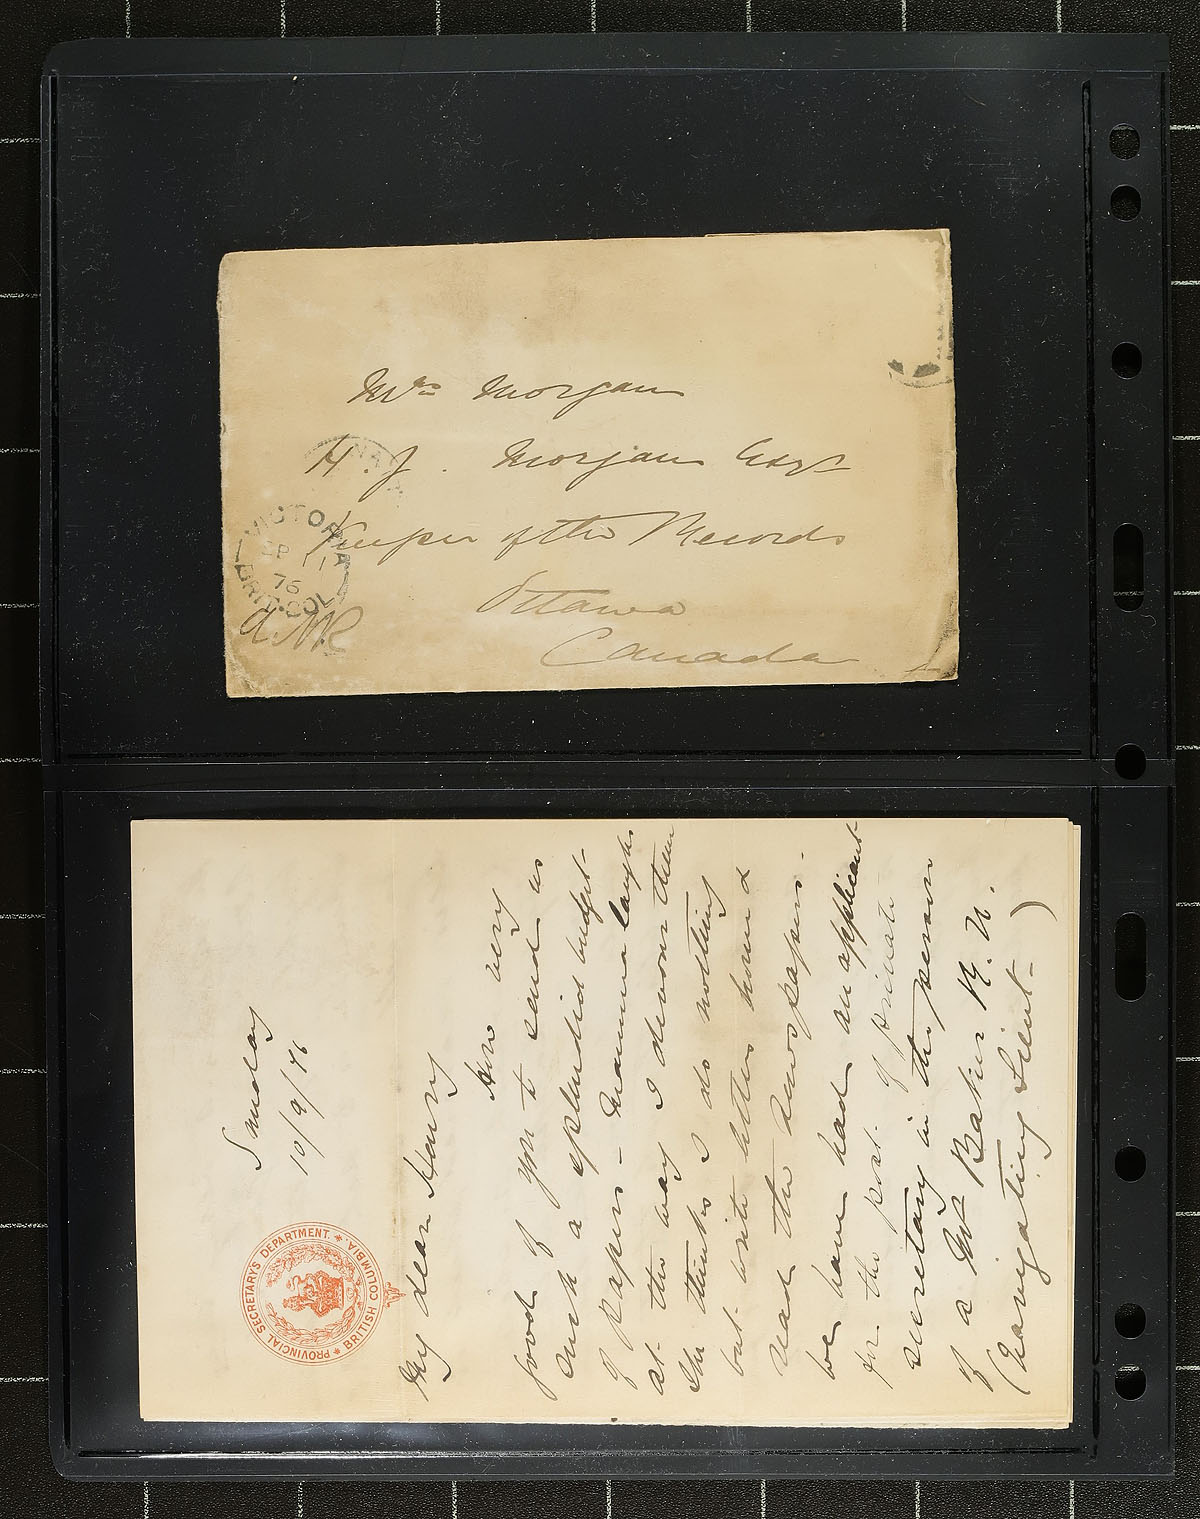 Mrs Morgan
H. J. Morgan Esqr
Keeper of the Records
Ottawa
Canada
VICTORIA
AP 11
76
BRIT. COL.
PROVINCIAL SECRETARY'S DEPARTMENT.
BRITISH COLUMBIA
Sunday
10/9/76
My dear Harry
How very
good of you to send us
such a splendid budget
of papers - Mamma laughs
at the way I devour them
She thinks I do nothing
but write letters home &
read the newspapers.
We have had an applicant
for the post of private
secretary in the person
of a Mr Baker R. N.
(Navigating Lieut- )